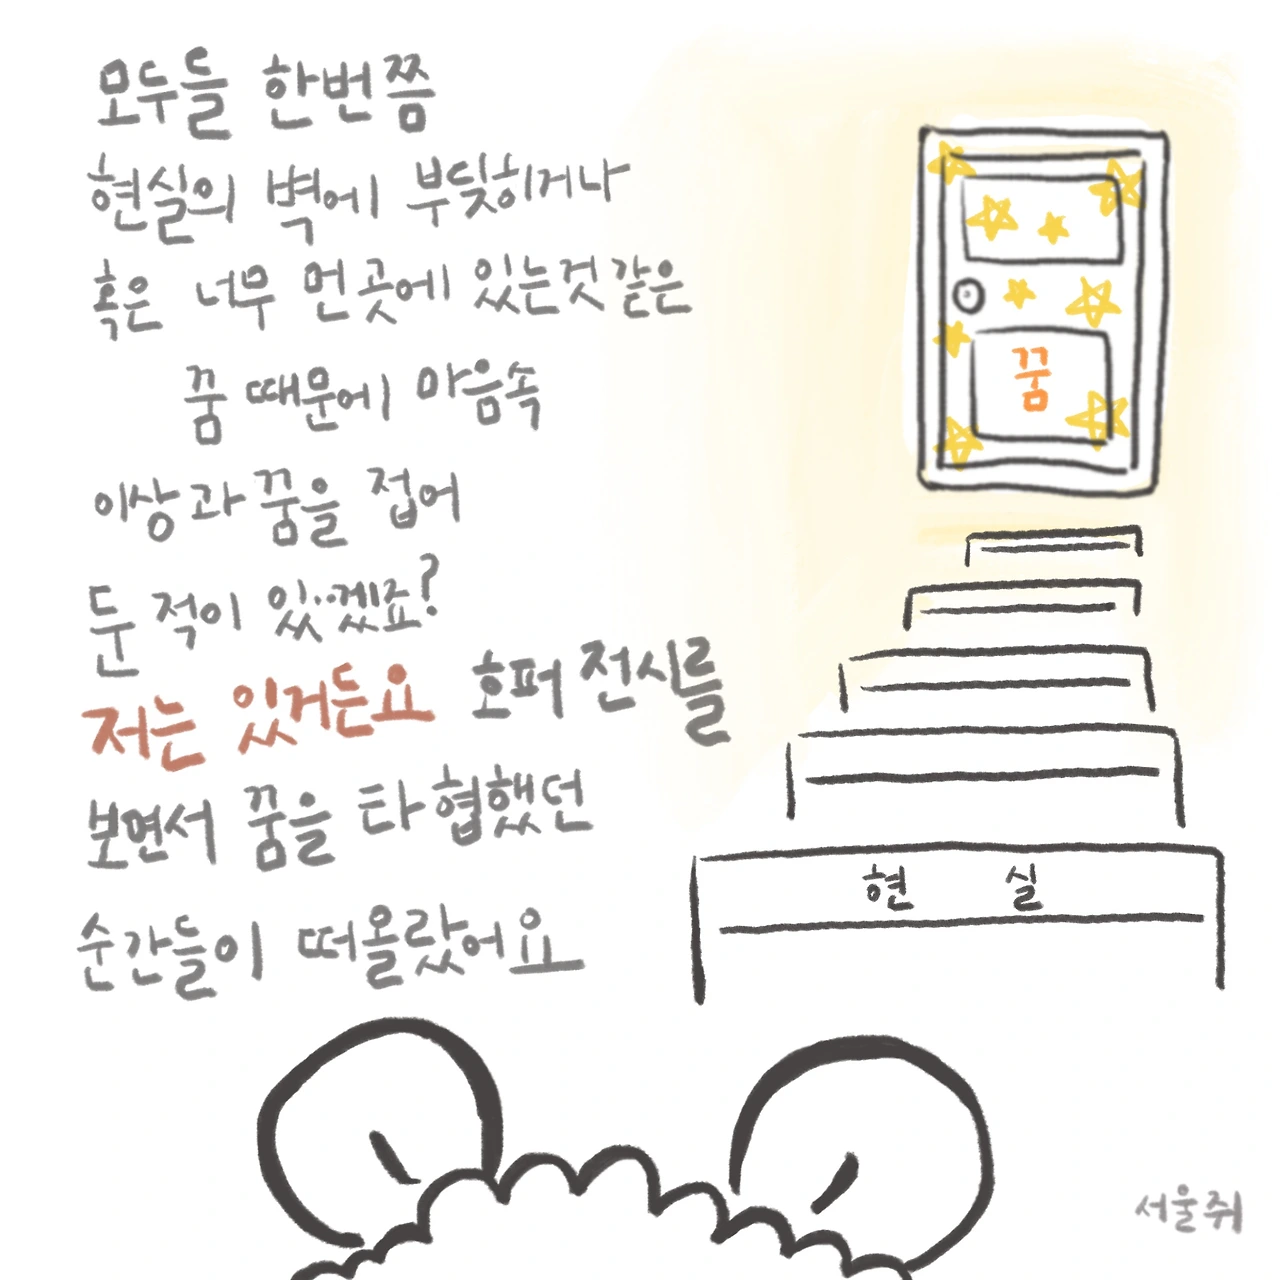 모두들 한번쯤
현실의 벽에 부딪히거나
혹은 너무 먼곳에 있는것 같은
꿈 때문에 마음속
이상과 꿈을 접어
둔 적이 있..겠죠?
저는 있거든요 호퍼 전시를
보면서 꿈을 타협했던
순간들이 떠올랐어요
꿈
현 실
서울쥐